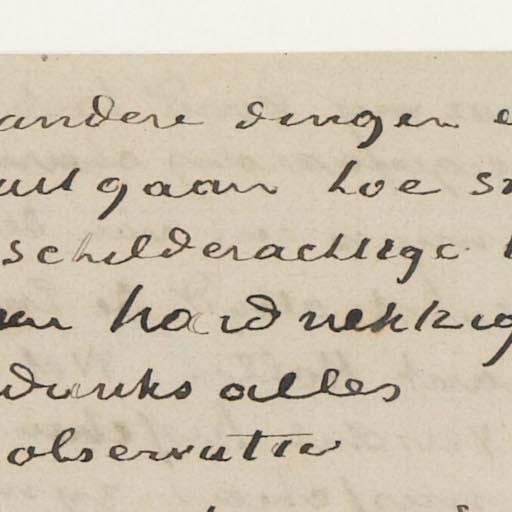 andere dingen
gaan hoe
schilderachtige
hardnekkig
alles
observatie